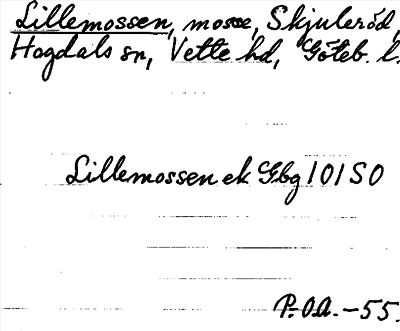 Lillemossen, mosse, Skjuleröd,
Hogdals sn, Vette hd, Göteb. l.
Lillemossen ek Gbg 101 SO
P.O.A. -55.